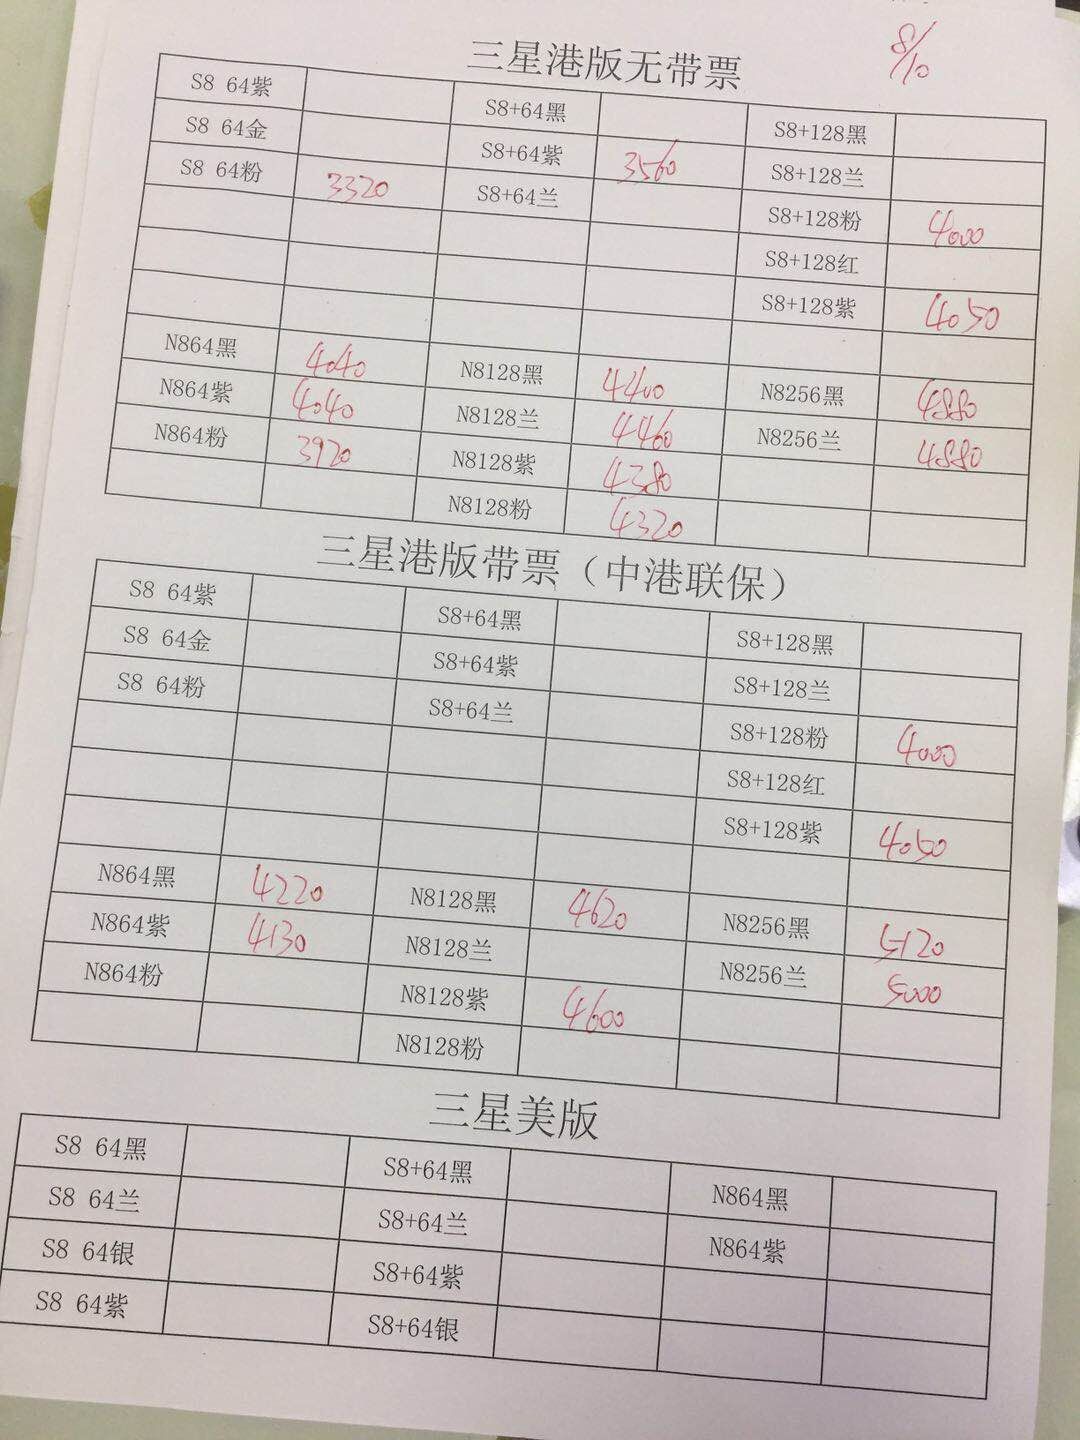 8/10
三星港版无带票
S8 64紫 S8+64黑 S8+128黑
S8 64金 S8+64紫 3560 S8+128兰
S8 64粉 3320 S8+64兰 S8+128粉 4000
S8+128红
S8+128紫 4050
N864黑 4040 N8128黑 4400 N8256黑 4880
N864紫 4040 N8128兰 4460 N8256兰 4880
N864粉 3920 N8128紫 4380
N8128粉 4320
三星港版带票（中港联保）
S8 64紫 S8+64黑 S8+128黑
S8 64金 S8+64紫 S8+128兰
S8 64粉 S8+64兰 S8+128粉 4000
S8+128红
S8+128紫 4050
N864黑 4220 N8128黑 4620 N8256黑 5120
N864紫 4130 N8128兰 N8256兰 5000
N864粉 N8128紫 4600
N8128粉
三星美版
S8 64黑 S8+64黑 N864黑
S8 64兰 S8+64兰 N864紫
S8 64银 S8+64紫
S8 64紫 S8+64银